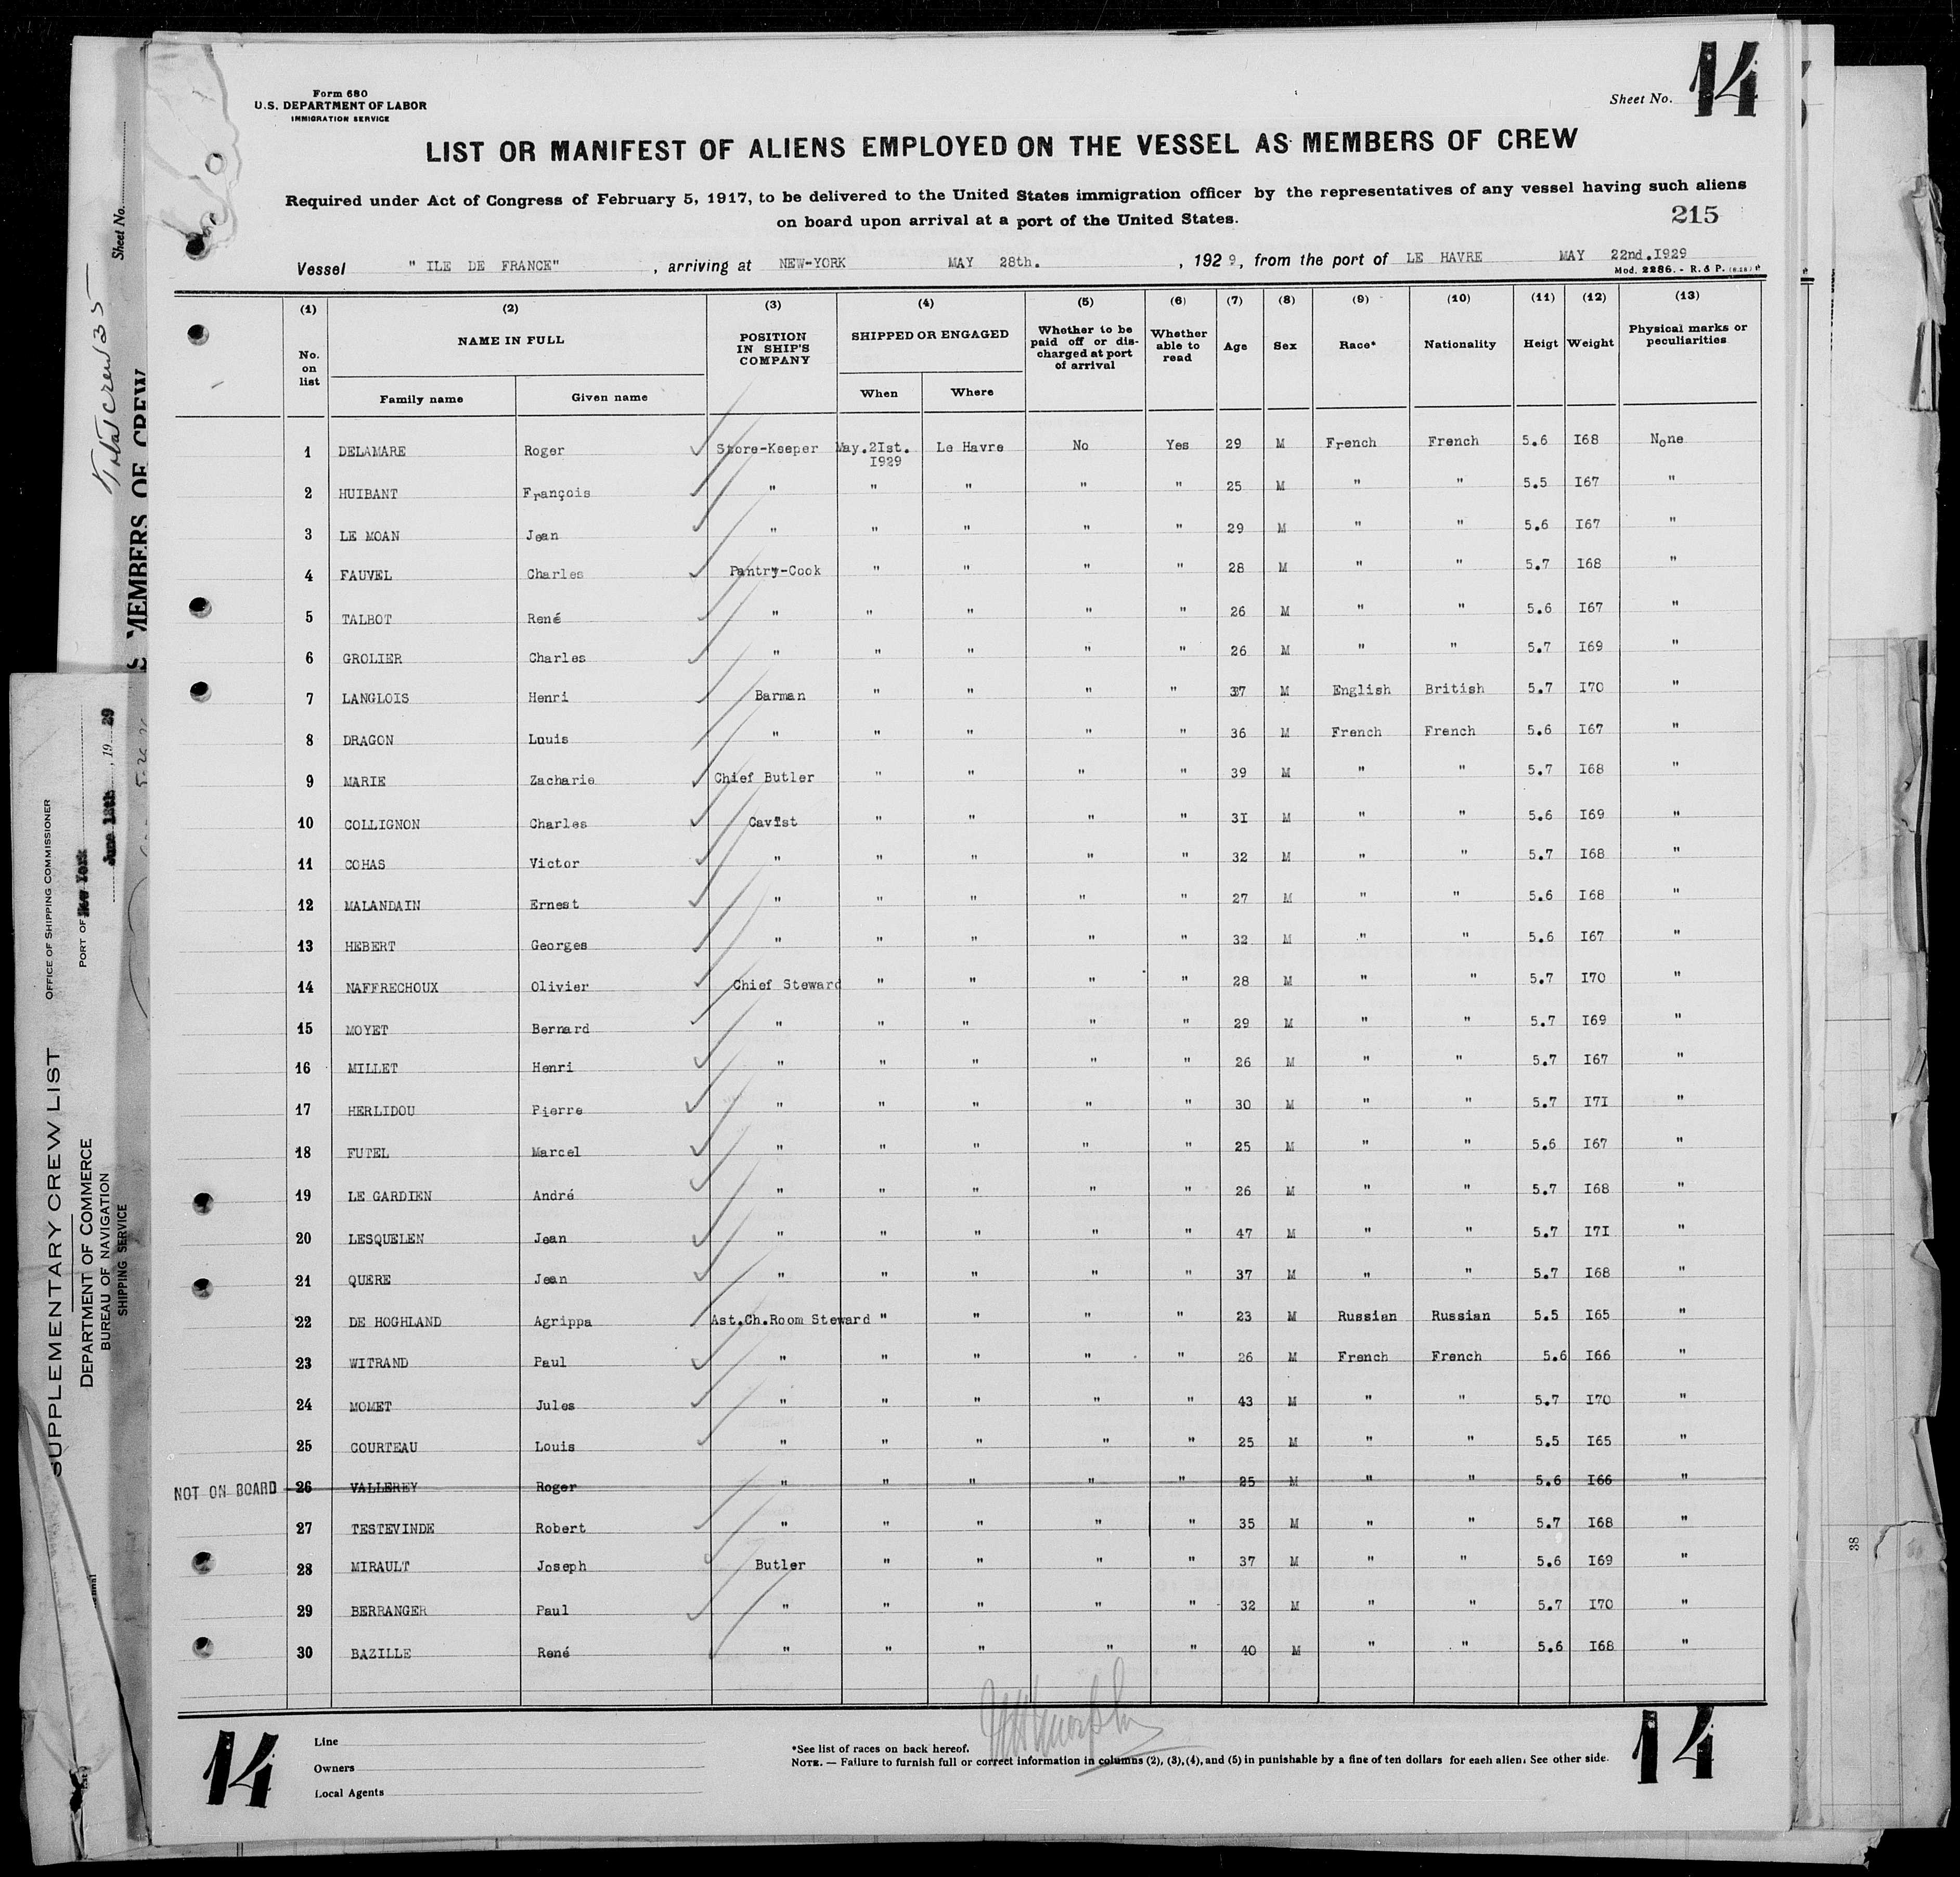 Form 680
U.S. DEPARTMENT OF LABOR
IMMIGRATION SERVICE
Sheet No. 14
LIST OR MANIFEST OF ALIENS EMPLOYED ON THE VESSEL AS MEMBERS OF CREW
Required under Act of Congress of February 5, 1917, to be delivered to the United States immigration officer by the representatives of any vessel having such aliens
on board upon arrival at a port of the United States.
215
Vessel " ILE DE FRANCE" , arriving at NEW-YORK MAY 28th. , 1929, from the port of LE HAVRE MAY 22nd.I929
Mod. 2286. - R. & P.
(1) (2) (3) (4) (5) (6) (7) (8) (9) (10) (11) (12) (13)
No. on list NAME IN FULL POSITION IN SHIP'S COMPANY SHIPPED OR ENGAGED Whether to be paid off or discharged at port of arrival Whether able to read Age Sex Race* Nationality Heigt Weight Physical marks or peculiarities
Family name Given name When Where
1 DELAMARE Roger Store-Keeper May.2Ist. I929 Le Havre No Yes 29 M French French 5.6 I68 None
2 HUIBANT François " " " " " 25 M " " 5.5 I67 "
3 LE MOAN Jean " " " " " 29 M " " 5.6 I67 "
4 FAUVEL Charles Pantry-Cook " " " " 28 M " " 5.7 I68 "
5 TALBOT René " " " " " 26 M " " 5.6 I67 "
6 GROLIER Charles " " " " " 26 M " " 5.7 I69 "
7 LANGLOIS Henri Barman " " " " 37 M English British 5.7 I70 "
8 DRAGON Louis " " " " " 36 M French French 5.6 I67 "
9 MARIE Zacharie Chief Butler " " " " 39 M " " 5.7 I68 "
10 COLLIGNON Charles Cavist " " " " 3I M " " 5.6 I69 "
11 COHAS Victor " " " " " 32 M " " 5.7 I68 "
12 MALANDAIN Ernest " " " " " 27 M " " 5.6 I68 "
13 HEBERT Georges " " " " " 32 M " " 5.6 I67 "
14 NAFFRECHOUX Olivier Chief Steward " " " " 28 M " " 5.7 I70 "
15 MOYET Bernard " " " " " 29 M " " 5.7 I69 "
16 MILLET Henri " " " " " 26 M " " 5.7 I67 "
17 HERLIDOU Pierre " " " " " 30 M " " 5.7 I7I "
18 FUTEL Marcel " " " " " 25 M " " 5.6 I67 "
19 LE GARDIEN André " " " " " 26 M " " 5.7 I68 "
20 LESQUELEN Jean " " " " " 47 M " " 5.7 I7I "
21 QUERE Jean " " " " " 37 M " " 5.7 I68 "
22 DE HOGHLAND Agrippa Ast.Ch.Room Steward " " " " 23 M Russian Russian 5.5 I65 "
23 WITRAND Paul " " " " " 26 M French French 5.6 I66 "
24 MOMET Jules " " " " " 43 M " " 5.7 I70 "
25 COURTEAU Louis " " " " " 25 M " " 5.5 I65 "
NOT ON BOARD 26 VALLEREY Roger " " " " " 25 M " " 5.6 I66 "
27 TESTEVINDE Robert " " " " " 35 M " " 5.7 I68 "
28 MIRAULT Joseph Butler " " " " 37 M " " 5.6 I69 "
29 BERRANGER Paul " " " " " 32 M " " 5.7 I70 "
30 BAZILLE René " " " " " 40 M " " 5.6 I68 "
14
Line
Owners
Local Agents
*See list of races on back hereof.
NOTE. — Failure to furnish full or correct information in columns (2), (3), (4), and (5) in punishable by a fine of ten dollars for each alien. See other side.
14
Sheet No.
Total crew 35
MEMBERS OF CREW
SUPPLEMENTARY CREW LIST
DEPARTMENT OF COMMERCE
BUREAU OF NAVIGATION
SHIPPING SERVICE
OFFICE OF SHIPPING COMMISSIONER
PORT OF New York
June 18th, 19 29
38